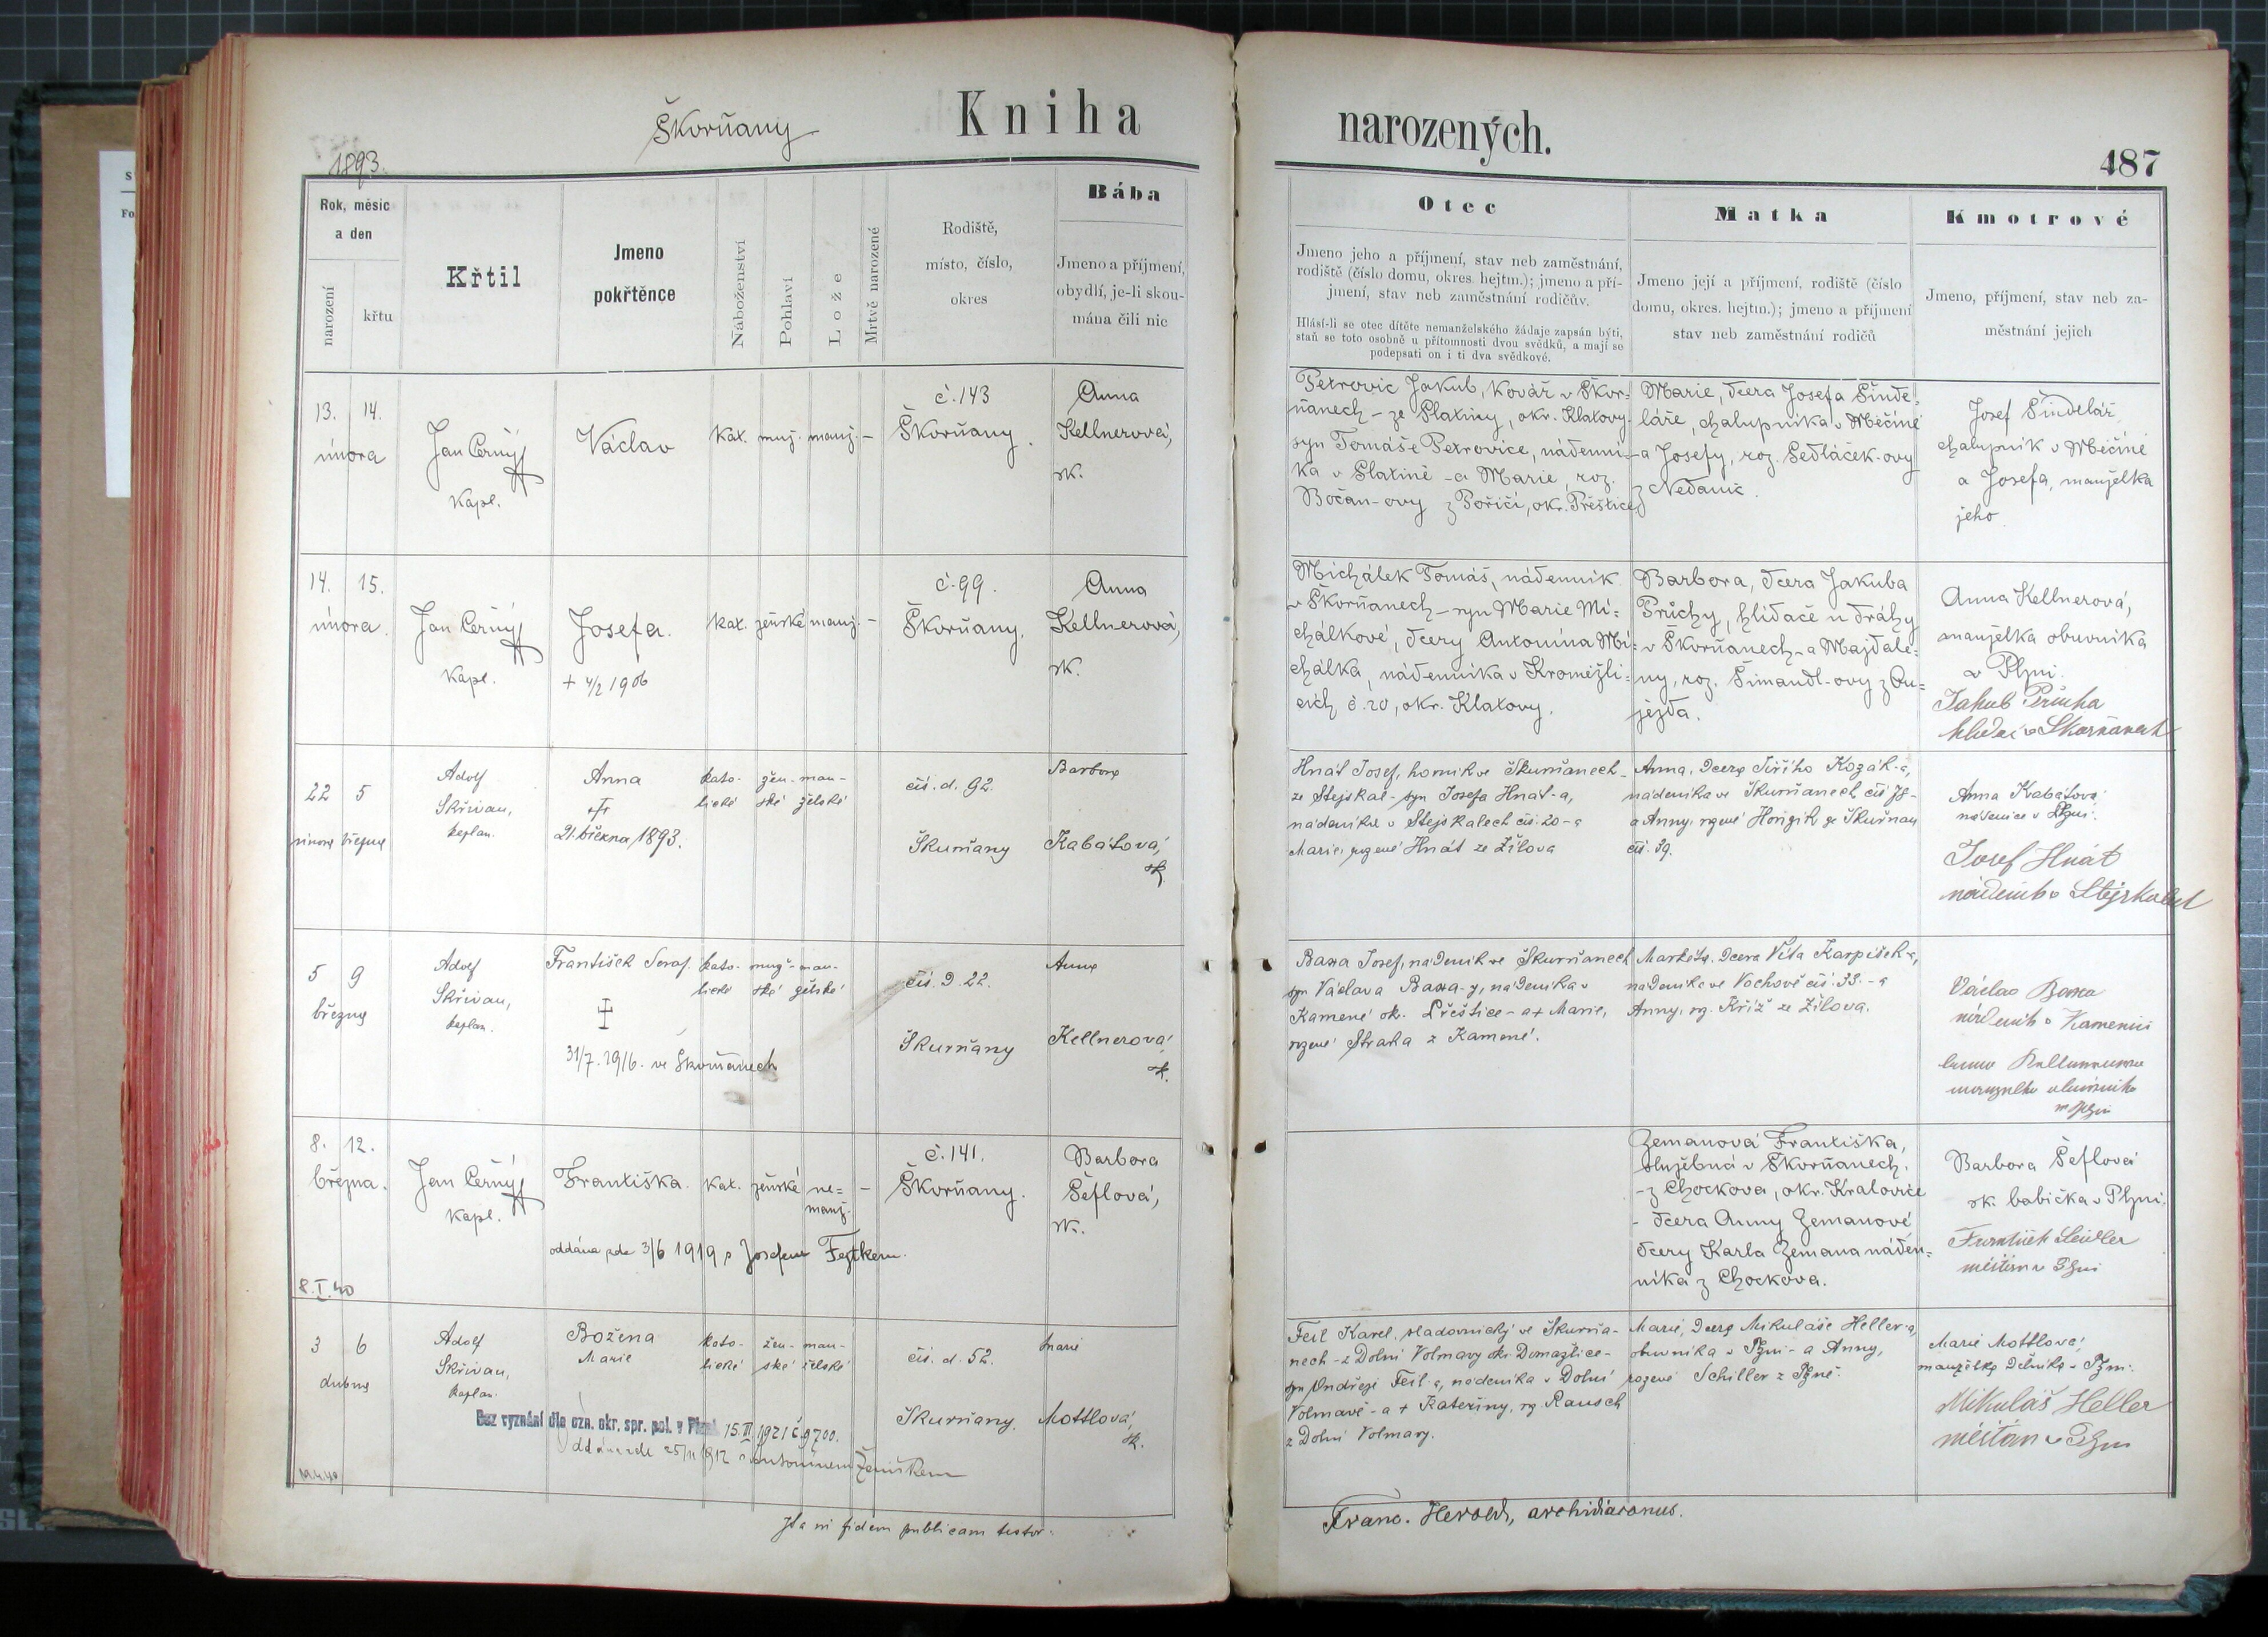 Škorňany
Kniha
narozených.
1893.
487
Rok, měsíc
a den
narození
křtu
Křtil
Jmeno
pokřtěnce
Náboženství
Pohlaví
Lože
Mrtvě narozené
Rodiště,
místo, číslo,
okres
Bába
Jmeno a příjmení,
obydlí, je-li skou-
mána čili nic
Otec
Jmeno jeho a příjmení, stav neb zaměstnání,
rodiště (číslo domu, okres. hejtm.); jmeno a pří-
jmení, stav neb zaměstnání rodičův.
Hlásí-li se otec dítěte nemanželského žádaje zapsán býti,
staň se toto osobně u přítomnosti dvou svědků, a mají se
podepsati on i ti dva svědkové.
Matka
Jmeno její a příjmení, rodiště (číslo
domu, okres. hejtm.); jmeno a příjmení
stav neb zaměstnání rodičů
Kmotrové
Jmeno, příjmení, stav neb za-
městnání jejich
13. 14.
února
Jan Černý
kapl.
Václav
kat. muž. manž. –
č. 143
Škorňany.
Anna
Kellnerová,
zk.
Petrovic Jakub, kovář v Škor-
ňanech – ze Slatiny, okr. Klatovy-
syn Tomáše Petrovice, nádenní-
ka v Slatině – a Marie, roz.
Bočan-ovy z Poříčí, okr. Přeštice
Marie, dcera Josefa Šinde-
láře, chalupníka v Měčíně
– a Josefy, roz. Sedláček-ovy
z Nedanic.
Josef Šindelář
chalupník v Měčíně
a Josefa, manželka
jeho.
14. 15.
února.
Jan Černý
kapl.
Josefa.
+ 4/2 1906
kat. ženské manž. –
č. 99.
Škorňany.
Anna
Kellnerová,
zk.
Michálek Tomáš, nádenník
v Škorňanech – syn Marie Mi-
chálkové, dcery Antonína Mi-
chálka, nádenníka v Kroměžli-
cích č. 20, okr. Klatovy.
Barbora, dcera Jakuba
Průchy, hlídače u dráhy
v Škorňanech – a Majdale-
ny, roz. Šimandl-ovy z Ou-
jezda.
Anna Kellnerová,
manželka obuvníka
v Plzni.
Jakub Průcha
hlídač v Skorňanech
22 5
února března
Adolf
Skřivan,
kaplan.
Anna
†
21. března 1893.
kato- žen- man-
lické ské želské
čís. d. 92.
Škurňany
Barbora
Kabátová,
zk.
Hnát Josef, horník ve Škurňanech –
ze Stejskal – syn Josefa Hnát-a,
nádeníka v Stejskalech čís. 20 – a
Marie, rozené Hnát ze Žilova
Anna, dcera Jiřího Kozák-a,
nádeníka ve Škurňanech čís 78 –
a Anny, rozené Honzík ze Škurňan
čís. 39.
Anna Kabátová
nádenice v Plzni.
Josef Hnát
nádeník v Stejskalech
5 9
března
Adolf
Skřivan,
kaplan.
František Seraf.
31/7. 1916. ve Škorňanech
kato- muž- man-
lické ské želské
čís. d. 22.
Škurňany
Anna
Kellnerová,
zk.
Baxa Josef, nádeník ve Škurňanech
syn Václava Baxa-y, nádeníka v
Kamené ok. Přeštice – a † Marie,
rozené Straka z Kamené.
Markéta, dcera Víta Karpíšek-a,
nádeníka ve Vochově čís. 33. – a
Anny, roz. Kříž ze Žilova.
Václav Baxa
nádeník v Kamenné
manželka obuvníka
v Plzni
8. 12.
března.
Jan Černý
kapl.
Františka.
kat. ženské ne-
manž. –
č. 141.
Škorňany.
Barbora
Šeflová,
zk.
oddána zde 3/6 1919 s Josefem
8.I.40
Zemanová Františka,
služebná v Škorňanech.
– z Chockova, okr. Kralovice
– dcera Anny Zemanové
dcery Karla Zemana náden-
níka z Chockova.
Barbora Šeflová
zk. babička v Plzni.
František
měšťan v Plzni
3 6
dubna
Adolf
Skřivan,
kaplan.
Božena
Marie
kato- žen- man-
lické ské želské
čís. d. 52.
Škurňany.
Marie
Mottlová,
zk.
Bez vyznání dle ozn. okr. spr. pol. v Plzni 15.III 1921 č. 9700.
Oddána zde 25/11 1912 s Antonínem Ženíškem
19.4.40
Feil Karel, sladovnický ve Škurňa-
nech – z Dolní Volmavy okr. Domažlice –
syn Ondřeje Feil-a, nádeníka v Dolní
Volmavě – a † Kateřiny, roz. Rausch
z Dolní Volmavy.
Marie, dcera Mikuláše Heller-a,
obuvníka v Plzni – a Anny,
rozené Schiller z Plzně.
Marie Mottlová,
manželka dělníka v Plzni.
Mikuláš Heller
měšťan v Plzni
Ita in fidem publicam testor:
Franc. Herold, archidiaconus.